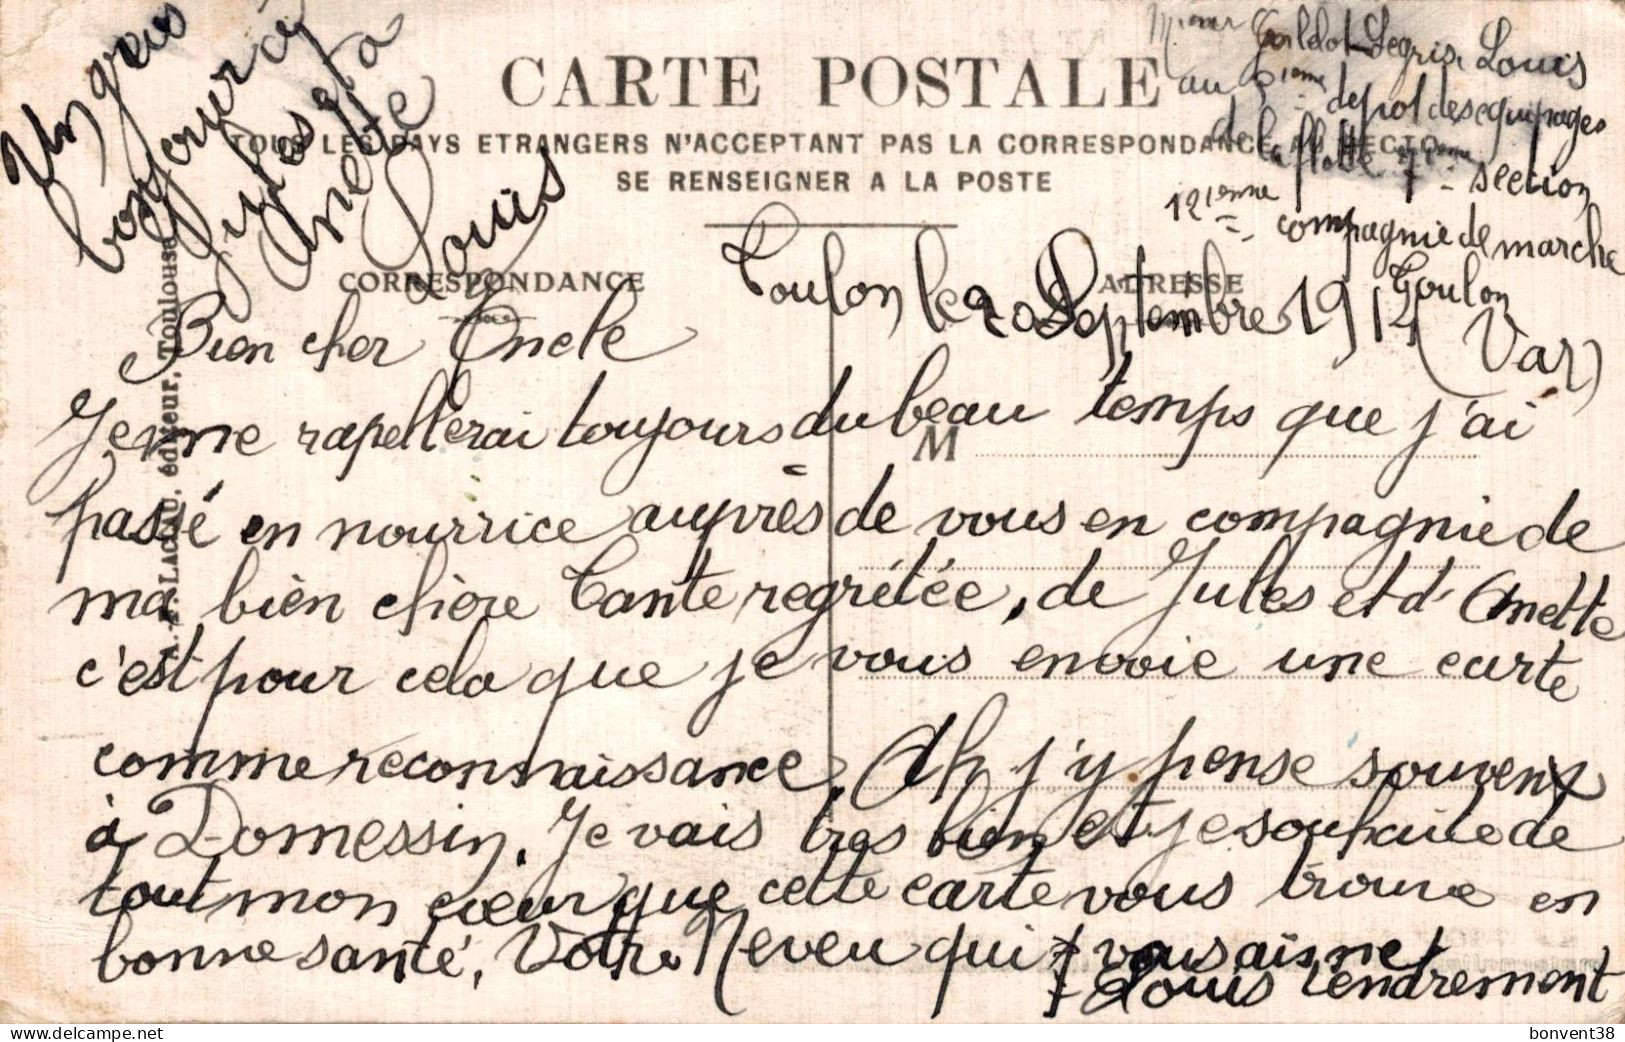 Un gros
bonjour à
Jules et à
Anette
Louis
Louis
au dépot des equipages
de la flotte 7ieme section
12ieme compagnie de marche
Toulon
(Var)
CARTE POSTALE
TOUS LES PAYS ETRANGERS N'ACCEPTANT PAS LA CORRESPONDANCE AU RECTO
SE RENSEIGNER A LA POSTE
CORRESPONDANCE
ADRESSE
Toulon le 20 Septembre 1914
Bien cher Oncle
Je me rapellerai toujours du beau temps que j'ai
M
passé en nourrice auprès de vous en compagnie de
ma bien chère Tante regrétée, de Jules et d'Anette
c'est pour cela que je vous envoie une carte
comme reconnaissance. Ah j'y pense souvent
à Domessin. Je vais tres bien et je souhaite de
tout mon cœur que cette carte vous trouve en
bonne santé. Votre Neveu qui vous aime
Louis tendrement
éditeur, Toulouse
bonvent38